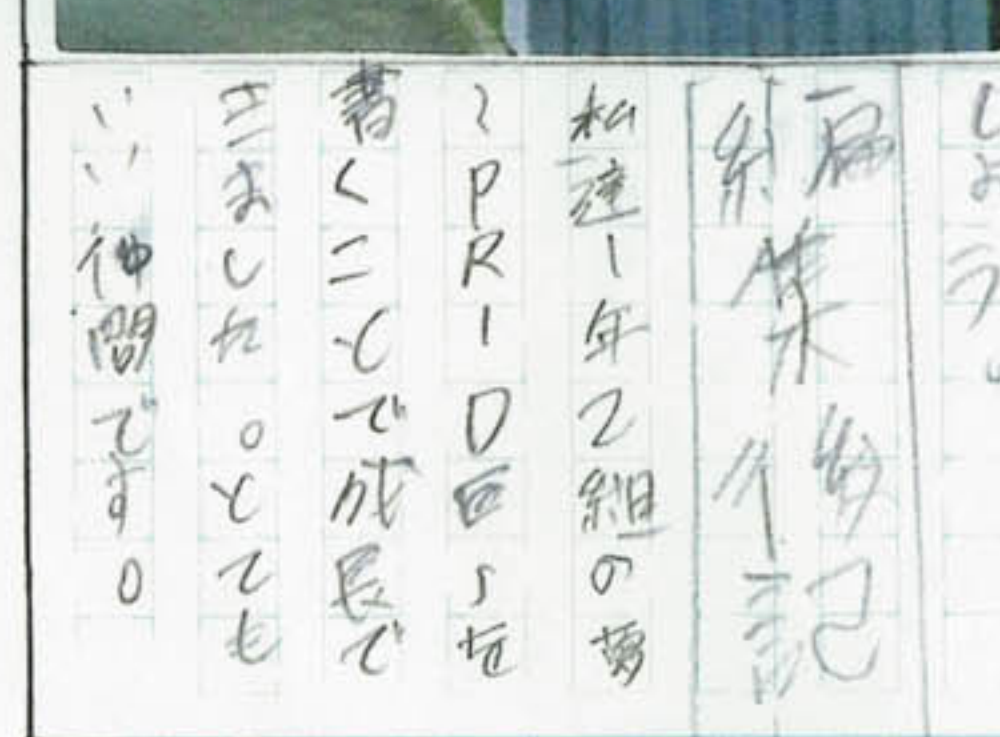 しょう。
編集後記
私達1年2組の夢
〜PRIDE〜を
書くことで成長で
きました。とても
いい仲間です。